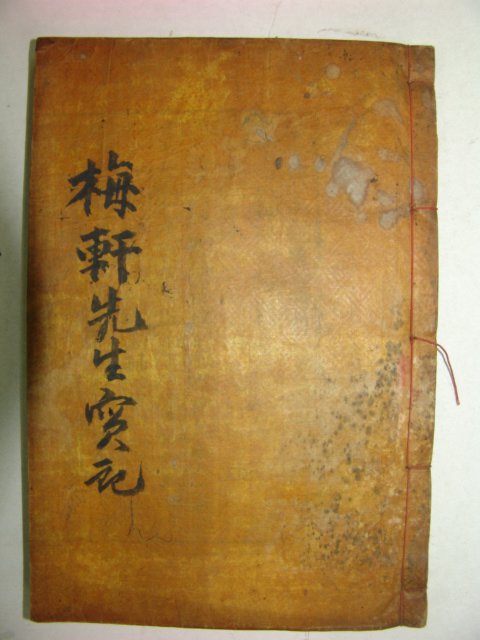 梅軒先生實記